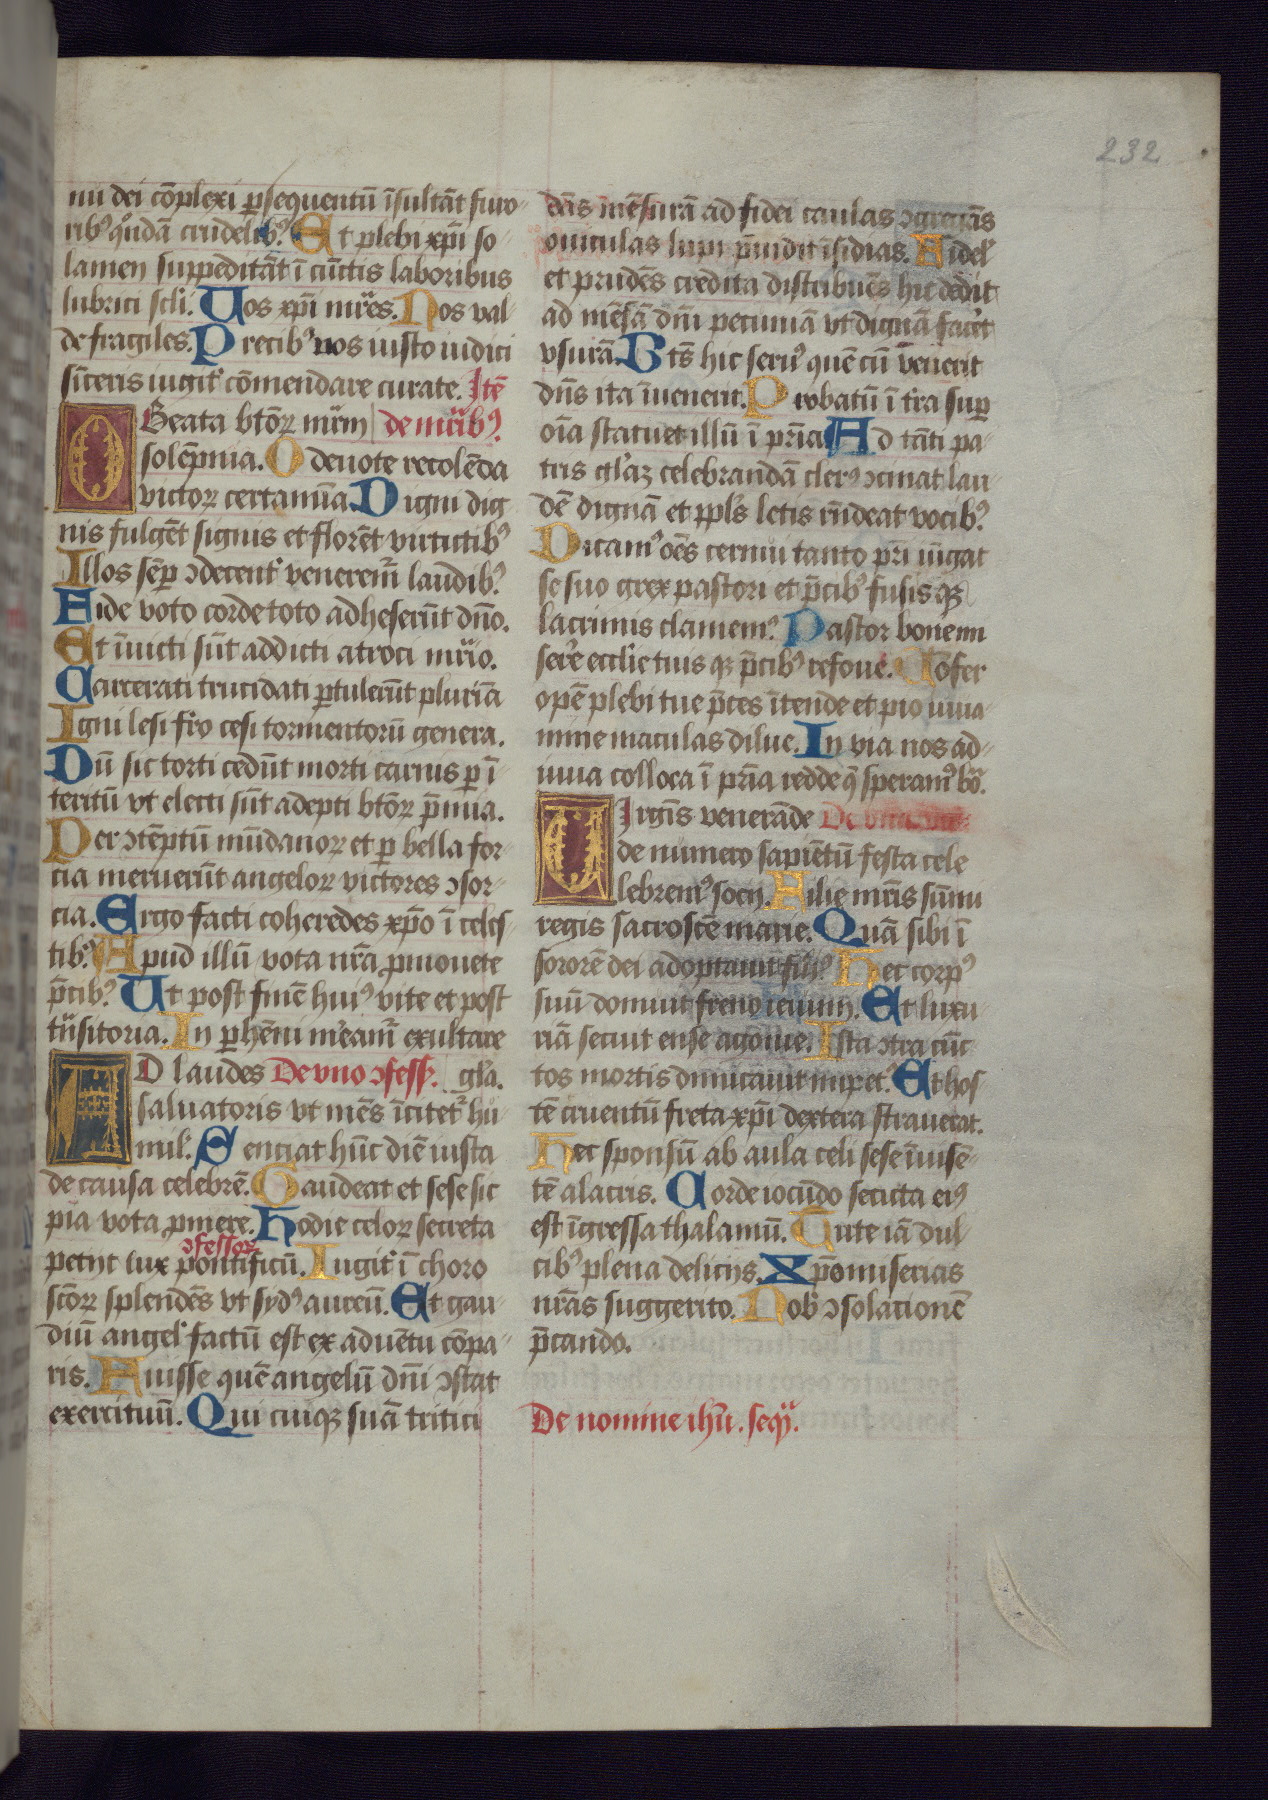 232
nu dei cōplexi ꝑsequentū īsultāt furo-
ribꝰ quādā crudelibꝰ. Et plebi xp̄i so-
lamen suppeditāt ī cūctis laboribus
lubrici scl̄i. Uos xp̄i mr̄es. Nos val-
de fragiles. Precibꝰ nos iusto iudici
sīceris iugit᷑ cōmendare curate. Itē
O Beata btōꝝ mr̄m de mr̄ibꝰ.
solēpnia. O deuote recolēda
victoꝝ certamīa. Digni dig
nis fulgēt signis et florēt virtutibꝰ
Illos sēꝑ ↄdecent᷑ veneremꝰ laudibꝰ.
Fide voto corde toto adheserūt dn̄o.
Et īuicti sūt addicti atroci mr̄io.
Carcerati trucidati ꝑtulerūt pluriā
Igni lesi fr̄o cesi tormentorū genera.
Dū sic torti cedūt morti carnis ꝑ ī-
teritū vt electi sūt adepti btōꝝ p̄mia.
Per ↄtēptū mūdanoꝝ et ꝑ bella for-
cia meruerūt angeloꝝ victores ↄsor-
cia. Ergo facti coheredes xp̄o ī celes
tibꝰ. Apud illū vota nr̄a ꝓmouete
p̄cibꝰ. Ut post finē huiꝰ vite et post
trāsitoria. In ꝑhēni mereamꝰ exultare
AD laudes De vno ↄfess. gl̄a.
saluatoris vt mēs īcitet᷑ hu-
mil. Senciat hūc diē iusta
de causa celebrē. Gaudeat et sese sic
pia vota ꝓmere. Hodie celoꝝ secreta
ↄfessoꝝ
petijt lux pontificū. Iugit᷑ ī choro
scōꝝ splendēs vt sydꝰ aureū. Et gau
diū angel᷑ factū est ex aduētu cōpa-
ris. Auisse quē angelū dn̄i ↄstat
exercituū. Qui cuiqꝫ suā tritici
dās mēsurā ad fidei caulas ↄgregās
ouiculas lupi p̄uidit īsidias. Fidel᷑
et prudēs credita distribuēs hic dedit
ad mēsā dn̄i pecuniā vt dignā facēt
vsurā. Bt̄s hic seruꝰ quē cū venerit
dn̄s ita īuenerit. Probatū ī tr̄a suꝑ
oīa statuet illū ī pr̄ia. Ad tāti pa-
tris gl̄aꝫ celebrandā clerꝰ ↄcinat lau
dē dignā et ppl̄s letis rn̄deat vocibꝰ.
Dicamꝰ oēs cernui tanto pr̄i iūgat
se suo grex pastori et p̄cibꝰ fusis qꝫ
lacrimis clamemꝰ. Pastor bone mi
serēre ecclīe tuis qꝫ p̄cibꝰ refoue. Cōfer
opē plebi tue p̄ces ītende et pio iuua-
mine maculas dilue. In via nos ad-
iuua colloca ī pr̄ia redde q̄ speramꝰ bō.
UIrgīs venerāde De
de numero sapiētū festa cele
lebremꝰ socij. Filie mr̄is sūmi
regis sacroscē marie. Quā sibi ī
sororē dei adoptauit filiꝰ. Hec corpꝰ
suū domuit freno ieiunij. Et luxu
riā secuit ense agonie. Ista ↄtra cūc
tos mortis dimicauit impet᷑. Et hos
tē cruentū freta xp̄i dextera strauerat.
Hec sponsū ab aula celi sese īuisē-
tē alacris. Corde iocūdo secuta eiꝰ
est īgressa thalamū. Que iā dul
cibꝰ plena delicijs. Xp̄o miserias
nr̄as suggerito. Nob᷑ ↄsolationē
p̄cando.
De nomine ihū. seq̄.